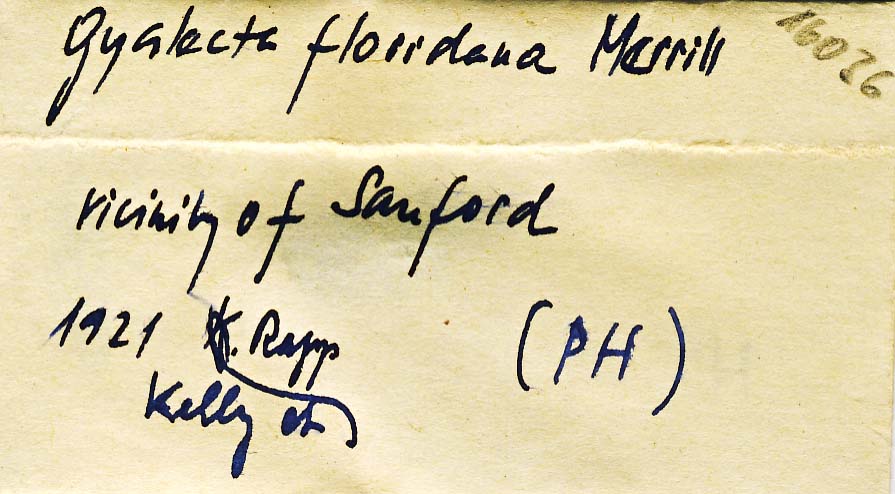 Gyalecta floridana Merrill
16036
vicinity of Sanford
1921 K. Rapp
(PH)
Kelly et